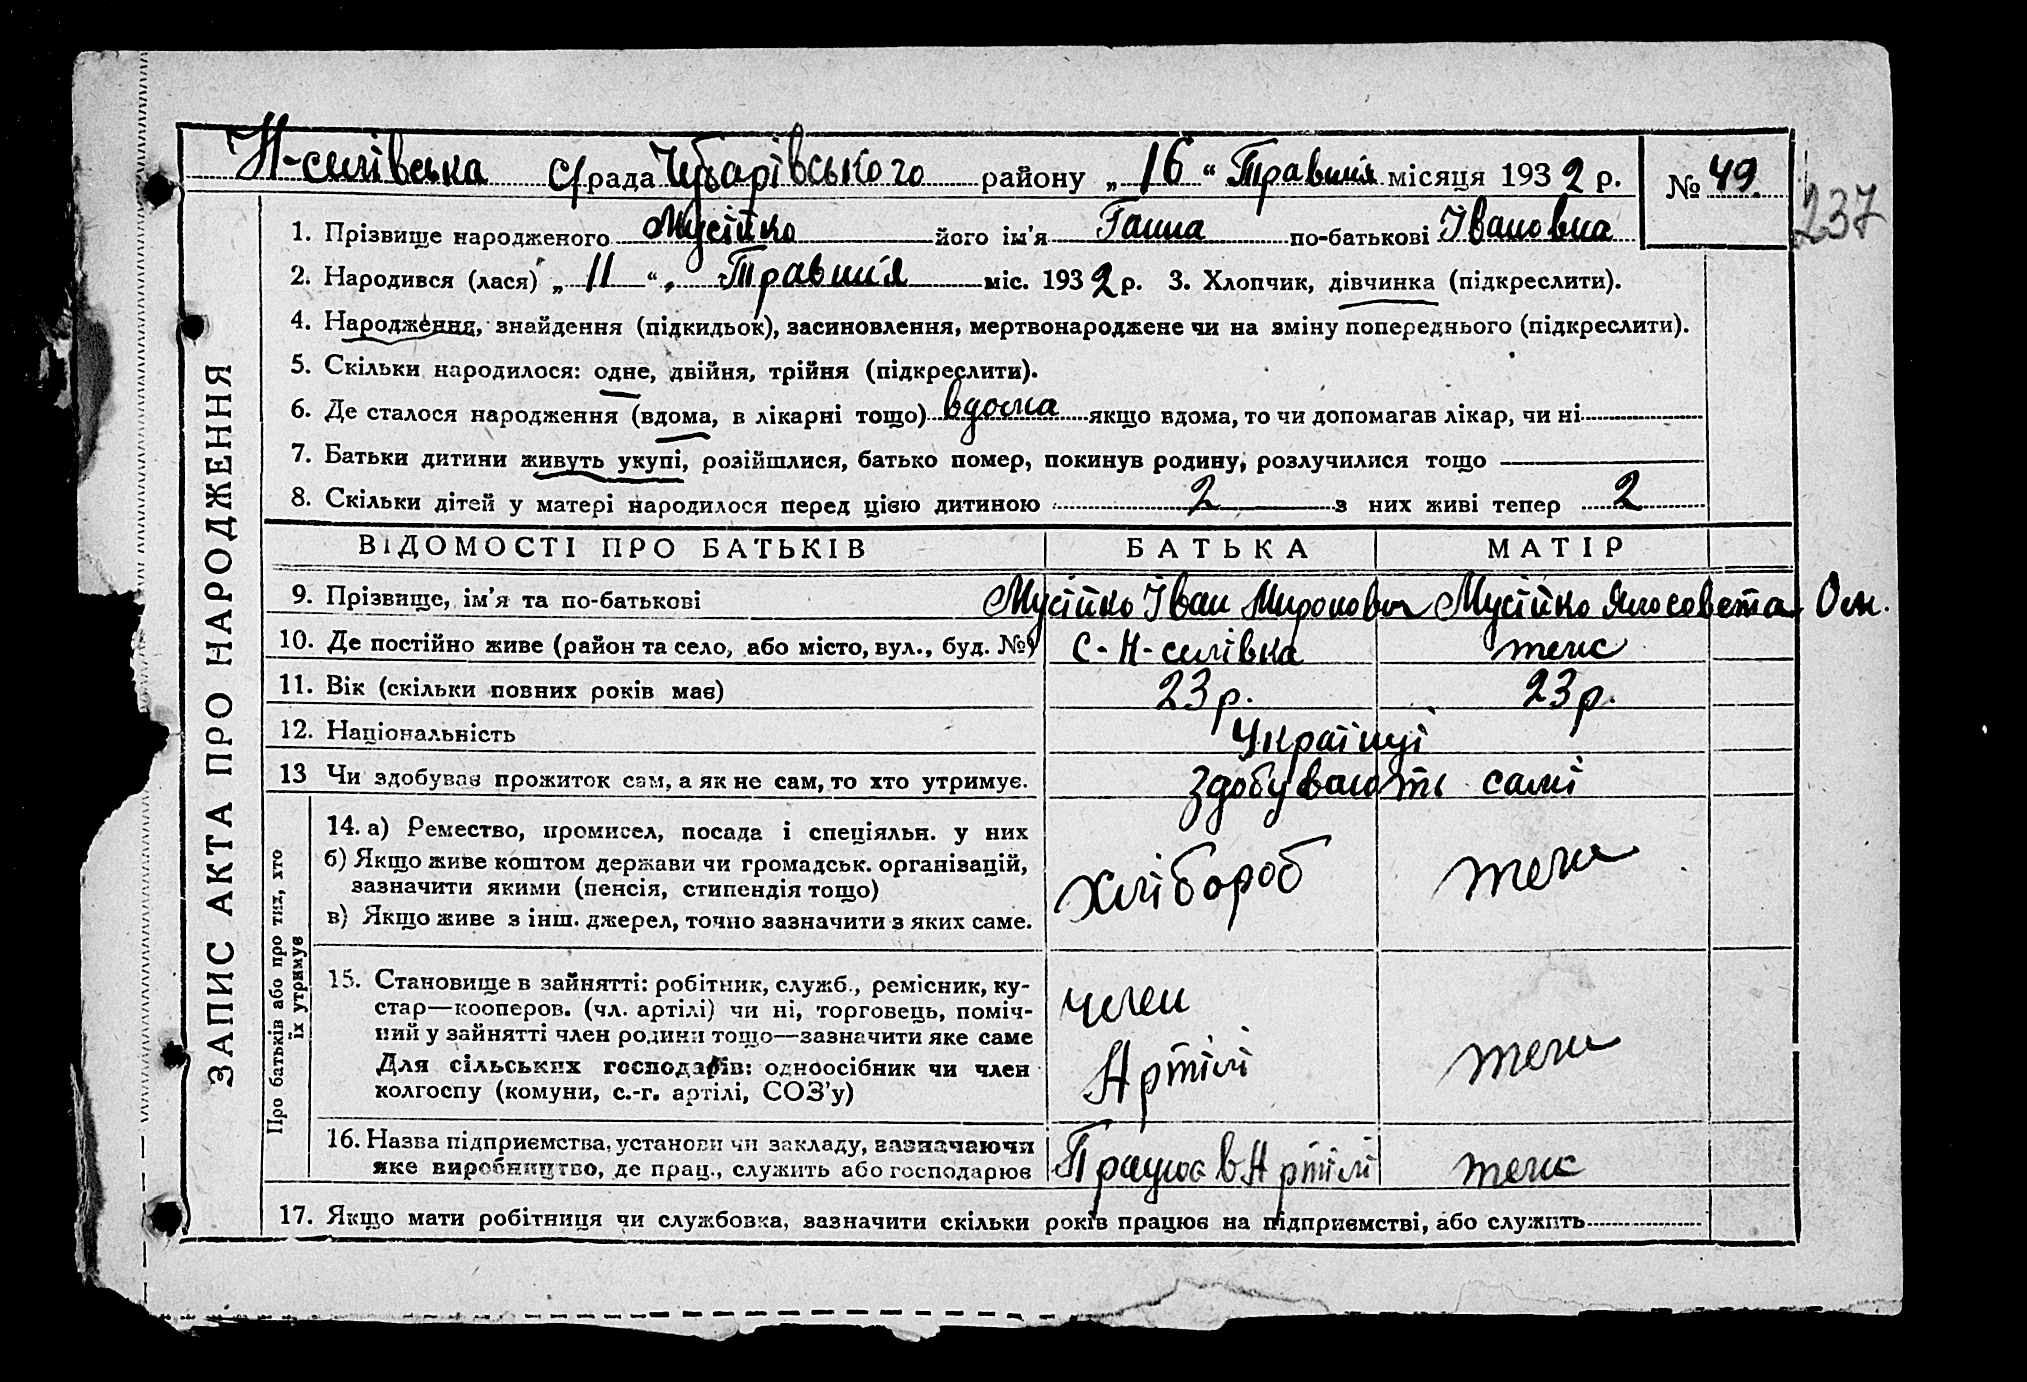 Н-силівська с/рада Чубарівського району „16“ Травня місяця 1932 р. № 49.
237
1. Прізвище народженого Мусійко його ім'я Ганна по-батькові Івановна
2. Народився (лася) „11“, Травня міс. 1932 р. 3. Хлопчик, дівчинка (підкреслити).
4. Народження, знайдення (підкидьок), засиновлення, мертвонароджене чи на зміну попереднього (підкреслити).
5. Скільки народилося: одне, двійня, трійня (підкреслити).
6. Де сталося народження (вдома, в лікарні тощо) вдома якщо вдома, то чи допомагав лікар, чи ні
7. Батьки дитини живуть укупі, розійшлися, батько помер, покинув родину, розлучилися тощо
8. Скільки дітей у матері народилося перед цією дитиною 2 з них живі тепер 2
ВІДОМОСТІ ПРО БАТЬКІВ БАТЬКА МАТІР
9. Прізвище, ім'я та по-батькові Мусійко Іван Миронович Мусійко Ялосовета Ом.
10. Де постійно живе (район та село, або місто, вул., буд. №) С-Н-силівка теж
11. Вік (скільки повних років має) 23 р. 23 р.
12. Національність Українці
13 Чи здобуває прожиток сам, а як не сам, то хто утримує. Здобувають самі
ЗАПИС АКТА ПРО НАРОДЖЕННЯ
Про батьків або про тих, хто
їх утримує
14. а) Ремество, промисел, посада і спеціяльн. у них
б) Якщо живе коштом держави чи громадськ. організацій,
зазначити якими (пенсія, стипендія тощо)
в) Якщо живе з інш. джерел, точно зазначити з яких саме.
Хлібороб теж
15. Становище в зайнятті: робітник, служб., ремісник, ку-
стар—кооперов. (чл. артілі) чи ні, торговець, поміч-
ний у зайнятті член родини тощо—зазначити яке саме
Для сільських господарів: одноосібник чи член
колгоспу (комуни, с.-г. артілі, СОЗ'у)
член
Артілі теж
16. Назва підприємства, установи чи закладу, зазначаючи
яке виробництво, де прац., служить або господарює
Працює в Артілі теж
17. Якщо мати робітниця чи службовка, зазначити скільки років працює на підприємстві, або служить